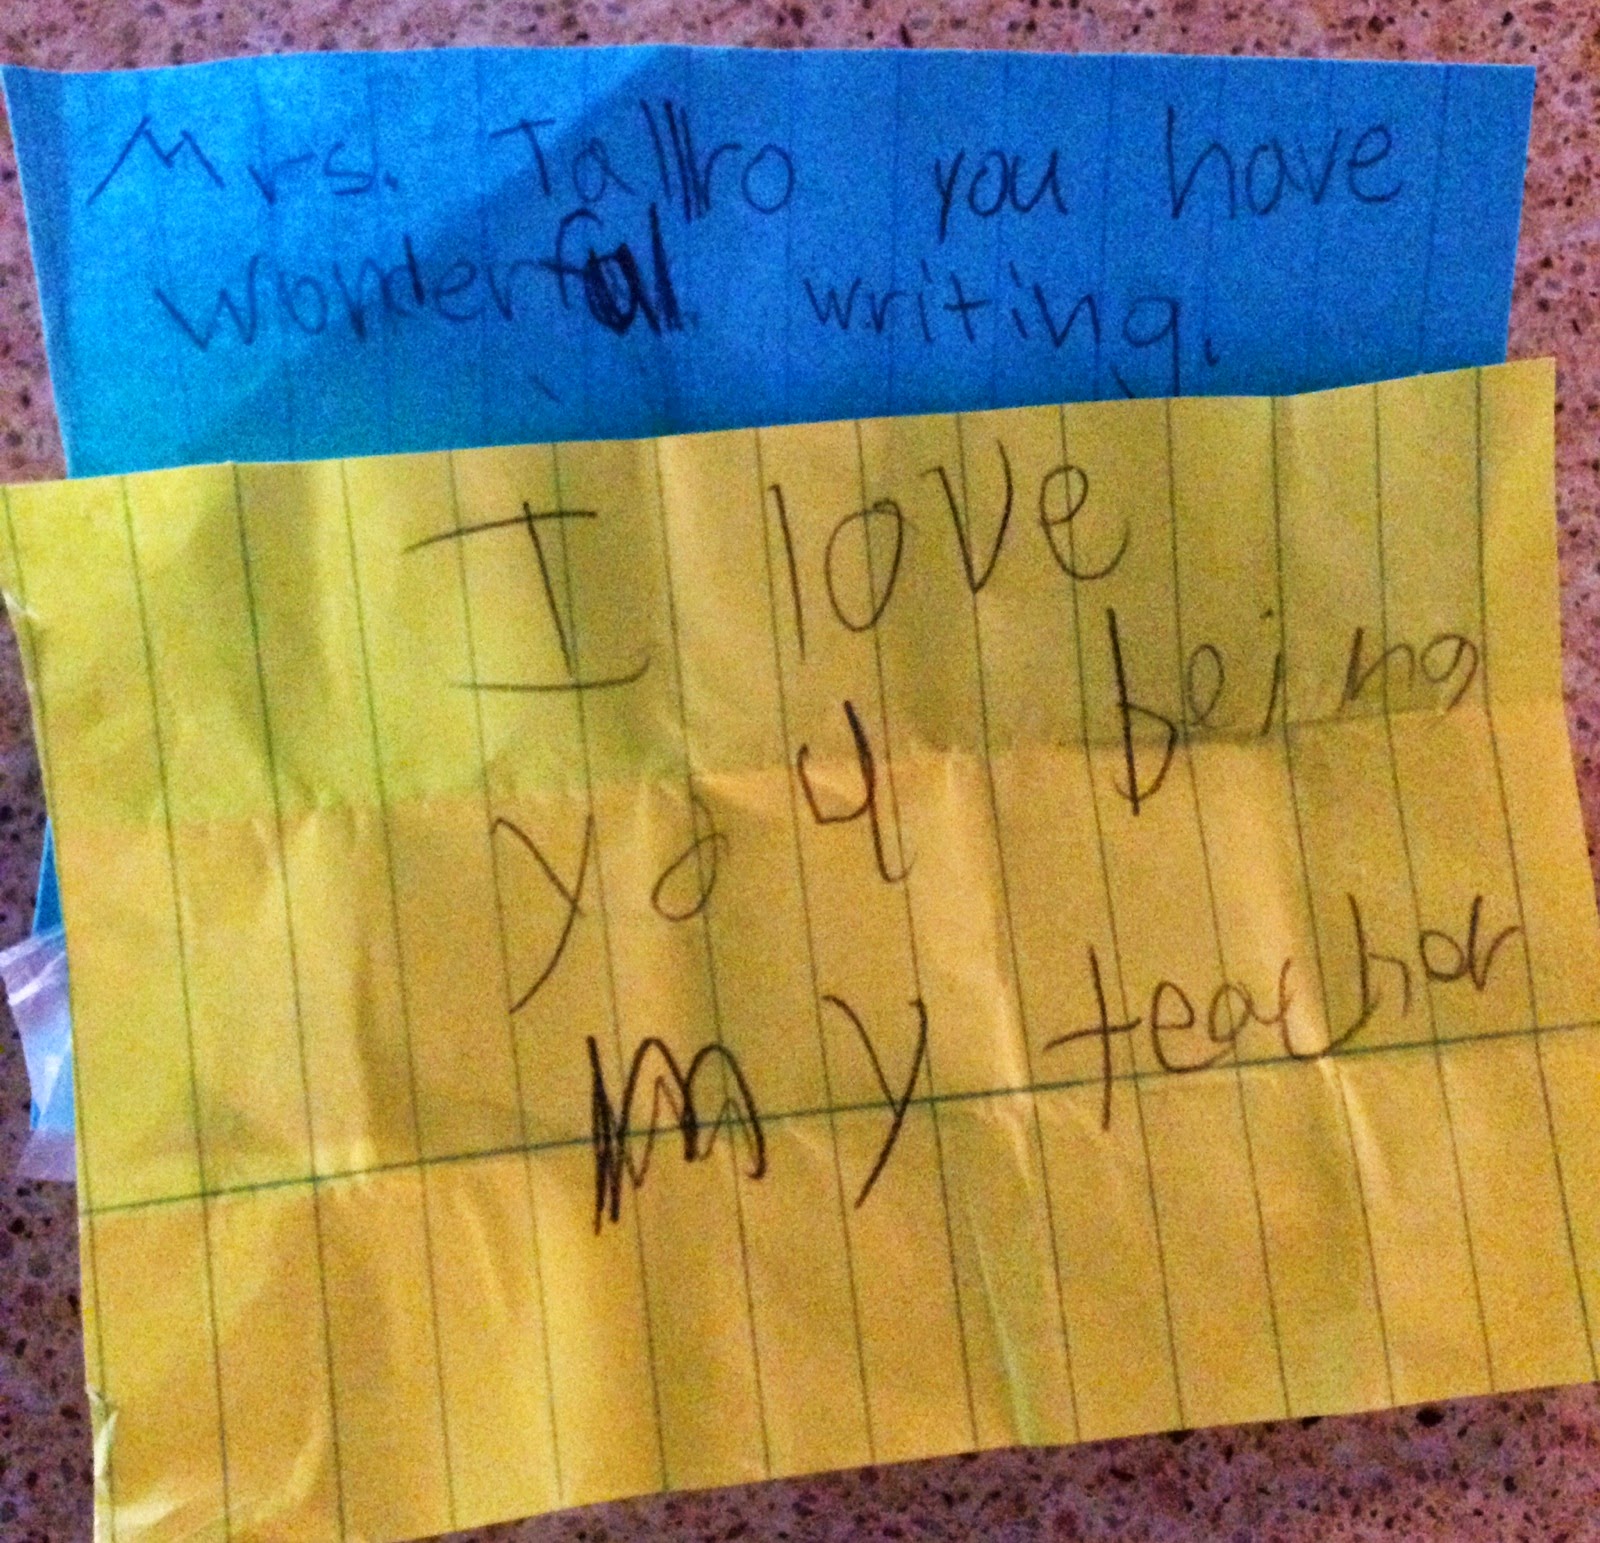 Mrs. Tallro you have
wonderful writing.
I love
you being
my teachor